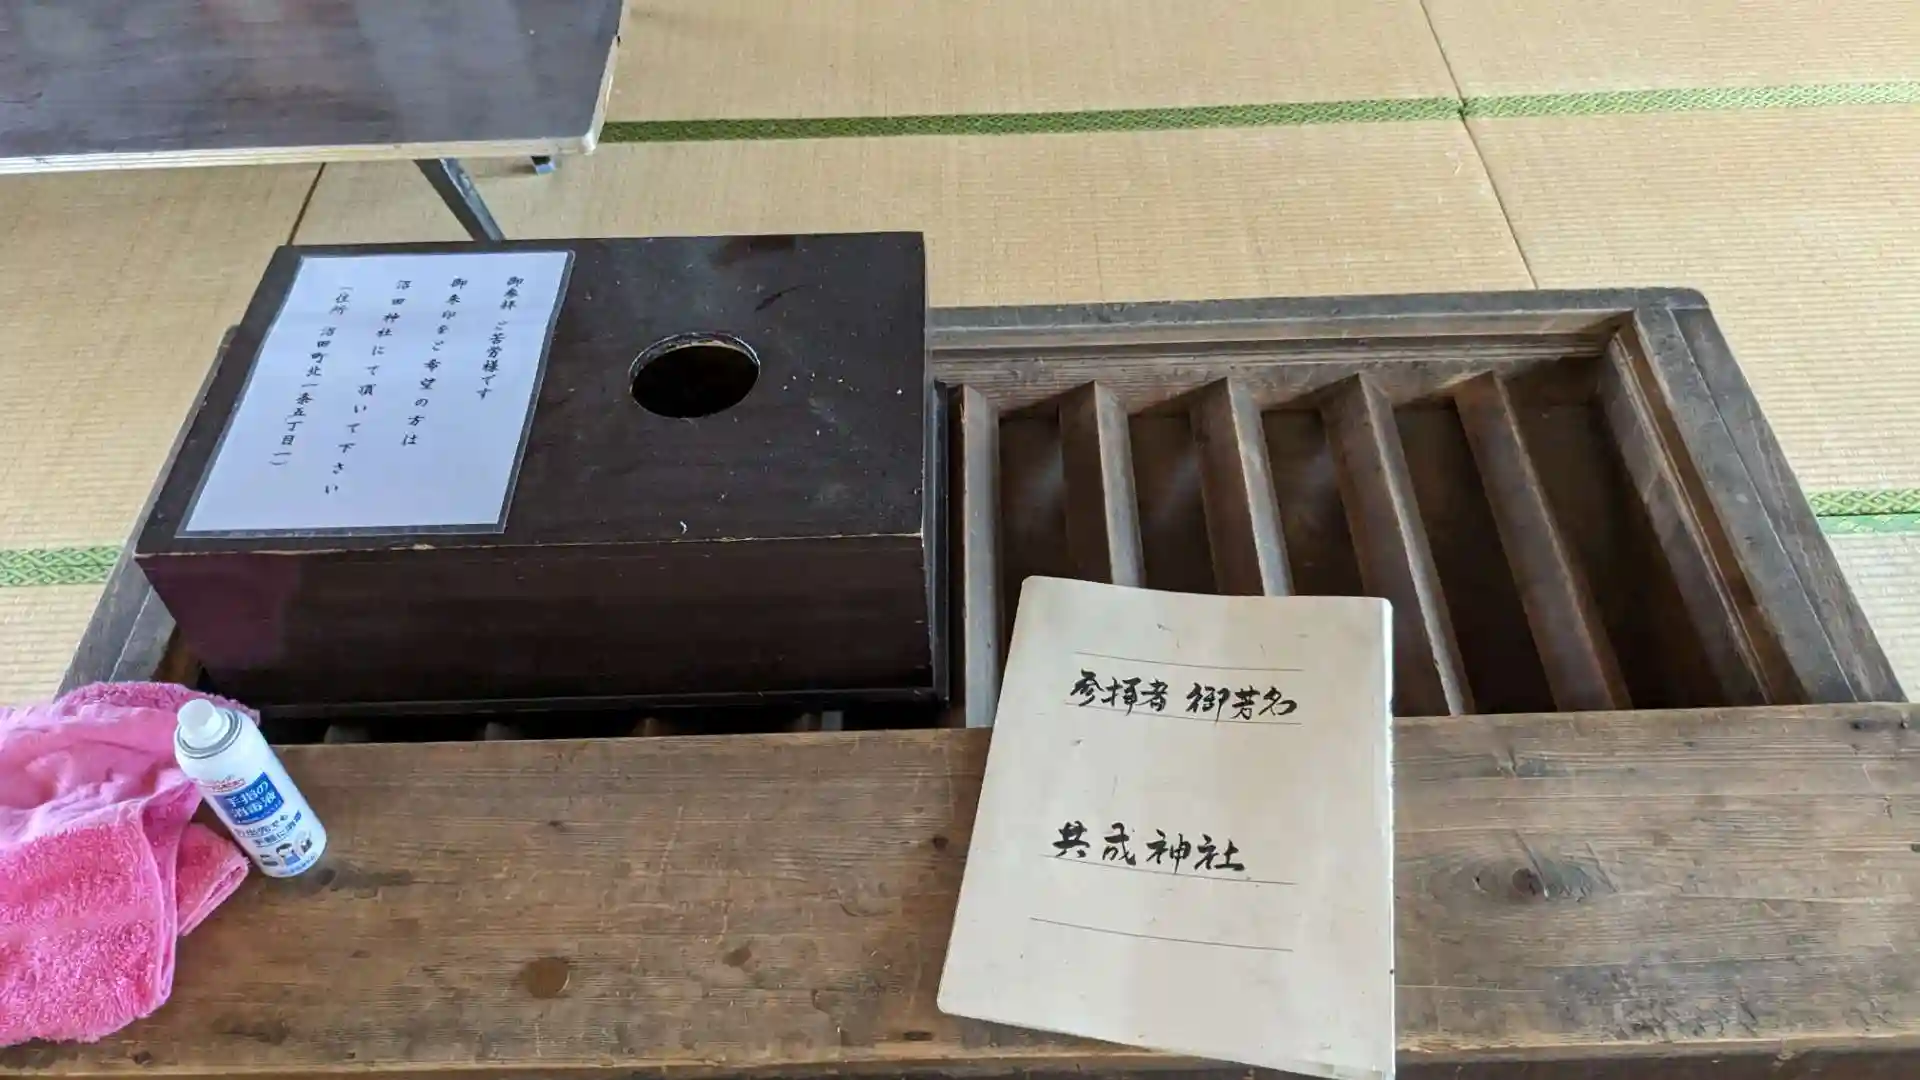 御参拝 ご苦労様です
御朱印をご希望の方は
沼田神社にて頂いて下さい
(住所 沼田町北一条五丁目一)
参拝者 御芳名
共成神社
手指の
消毒液
外出先でも
手軽に消毒